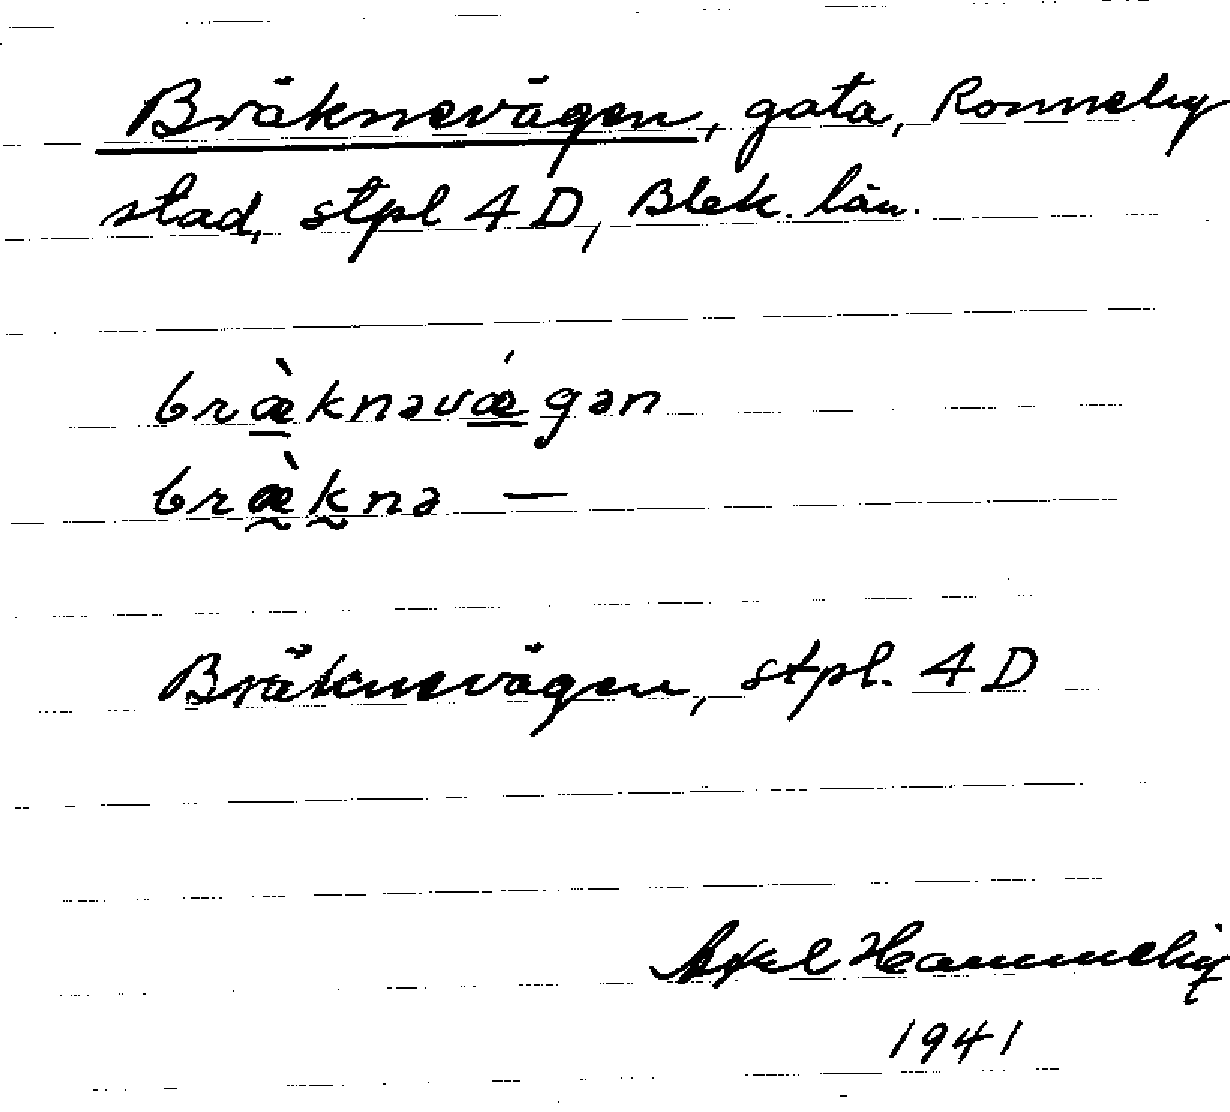 Bräknevägen, gata, Ronneby
stad, stpl 4 D, Blek. län.
bræ̀knəvǽgən
bræ̀knə —
Bräknevägen, stpl. 4 D
Axel Hammeby
1941